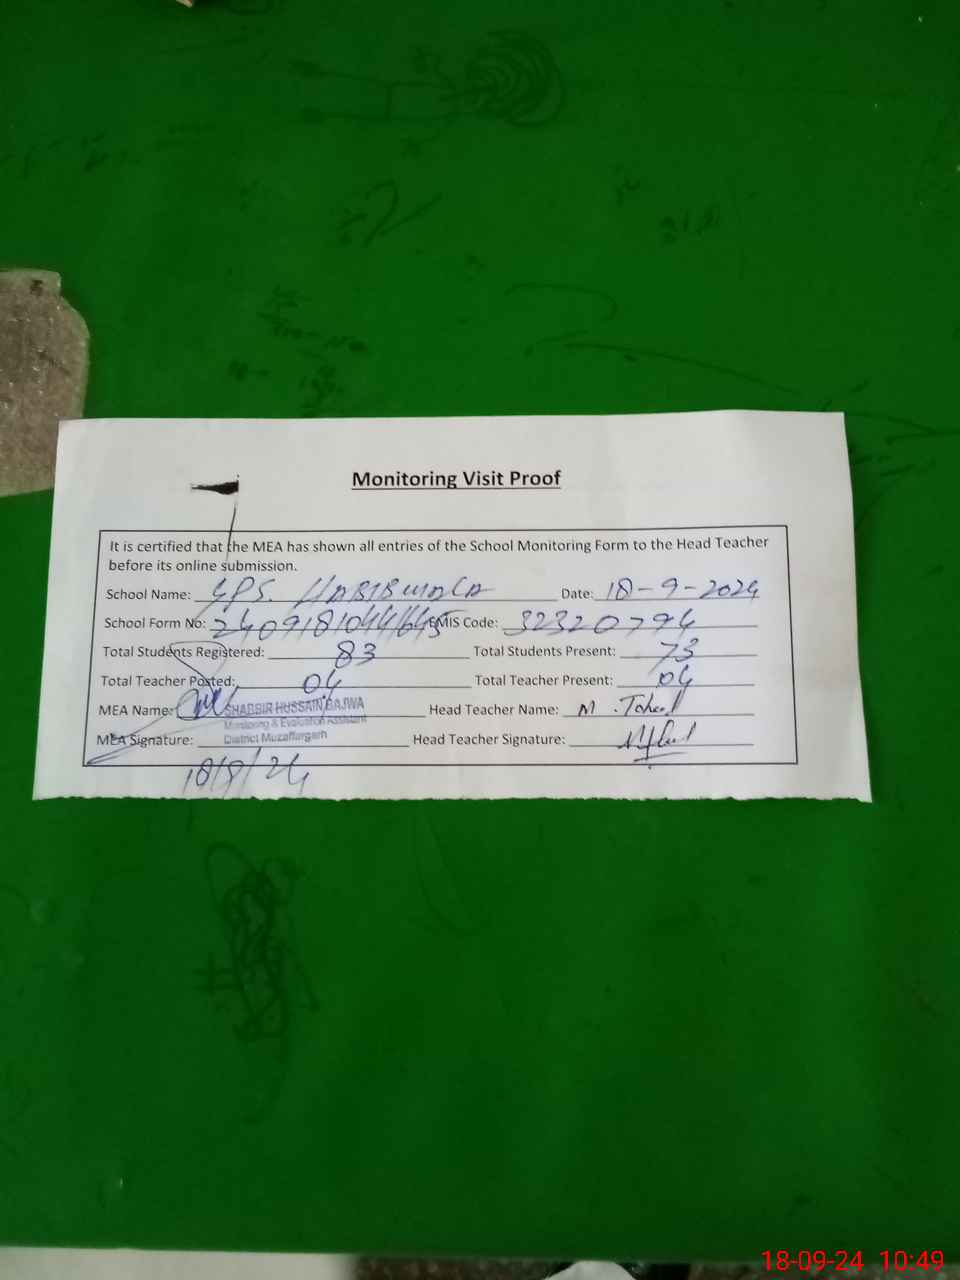 Monitoring Visit Proof
It is certified that the MEA has shown all entries of the School Monitoring Form to the Head Teacher
before its online submission.
School Name: GPS. HABIBWALA Date: 18-9-2024
School Form No: EMIS Code: 32320794
Total Students Registered: 83 Total Students Present: 73
Total Teacher Posted: 04 Total Teacher Present: 04
MEA Name: SHABBIR HUSSAIN BAJWA Head Teacher Name: M.
Monitoring & Evaluation Assistant
MEA Signature: District Muzaffargarh Head Teacher Signature:
18/9/24
18-09-24 10:49